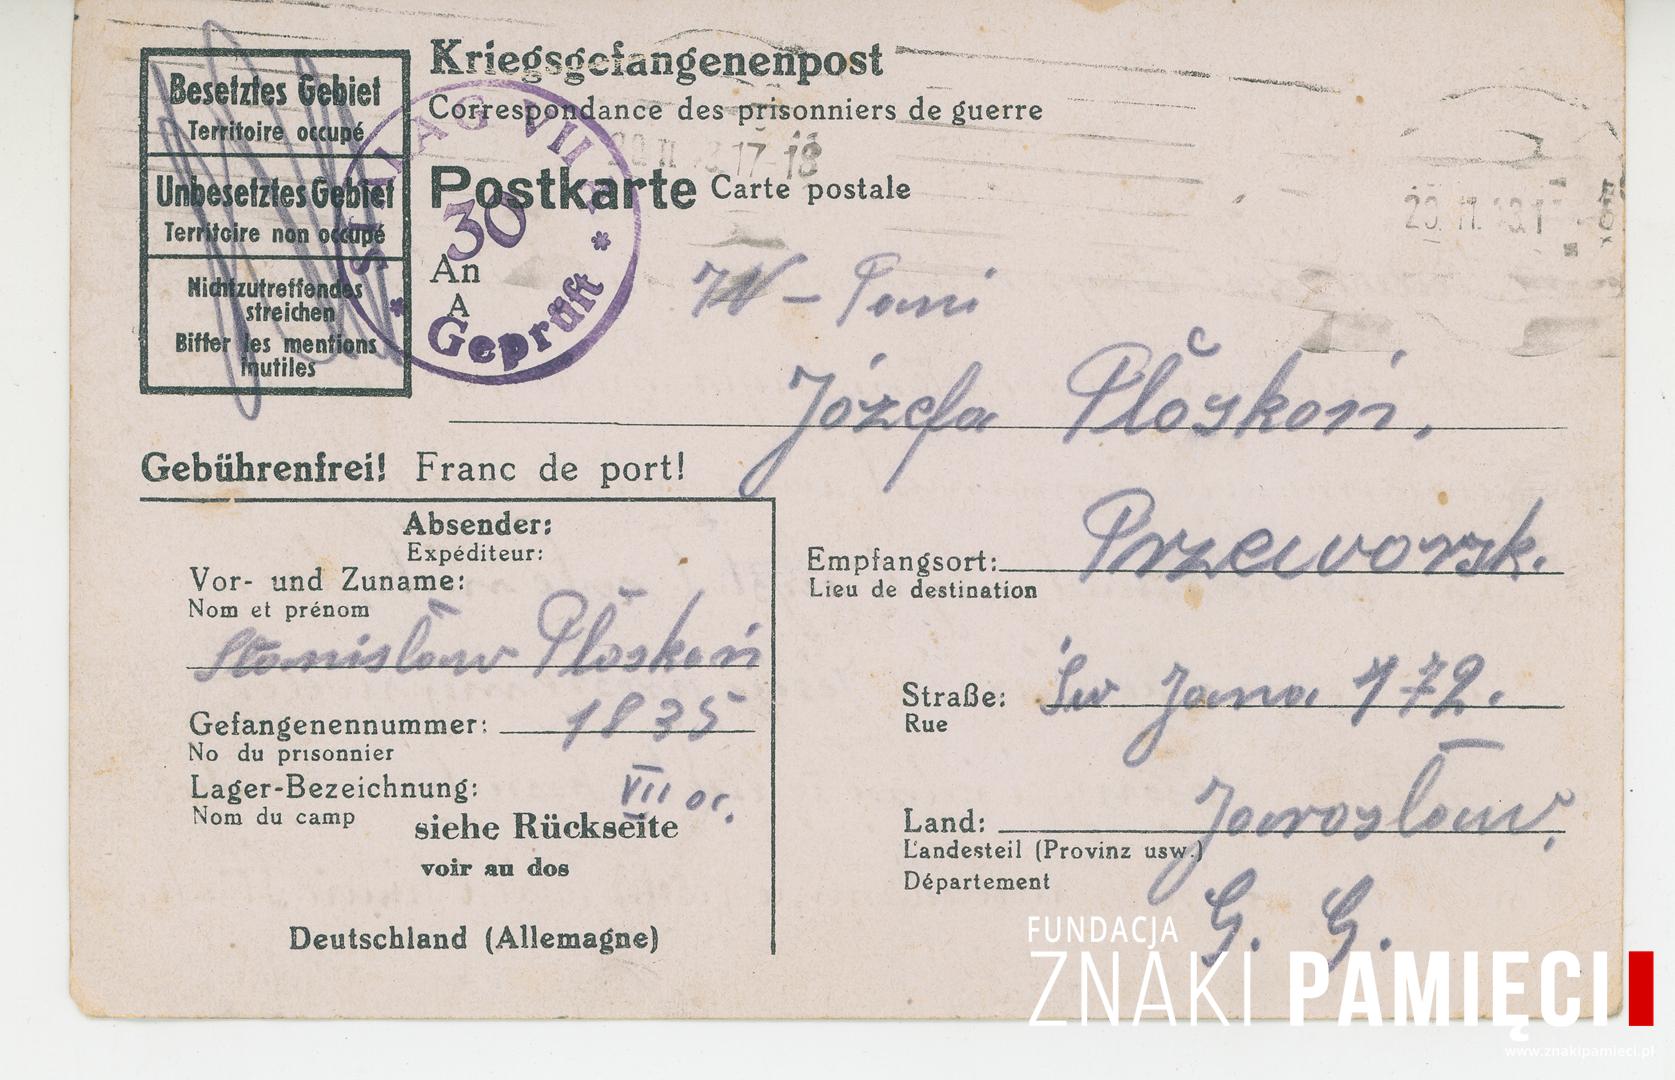 Besetztes Gebiet
Territoire occupé
Unbesetztes Gebiet
Territoire non occupé
Nichtzutreffendes
streichen
Biffer les mentions
inutiles
Kriegsgefangenenpost
Correspondance des prisonniers de guerre
Postkarte Carte postale
STALAG VII
30
Geprüft
An
A
Pani
Józefa Płoskoń,
Gebührenfrei! Franc de port!
Absender:
Expéditeur:
Vor- und Zuname:
Nom et prénom
Stanisław Płoskoń
Gefangenennummer: 1835
No du prisonnier
Lager-Bezeichnung: VII
Nom du camp
siehe Rückseite
voir au dos
Deutschland (Allemagne)
Empfangsort: Przeworsk.
Lieu de destination
Straße: Św Jana 172.
Rue
Land: Jarosław,
Landesteil (Provinz usw.)
Département
G. G.
FUNDACJA
ZNAKI PAMIĘCI
www.znakipamieci.pl